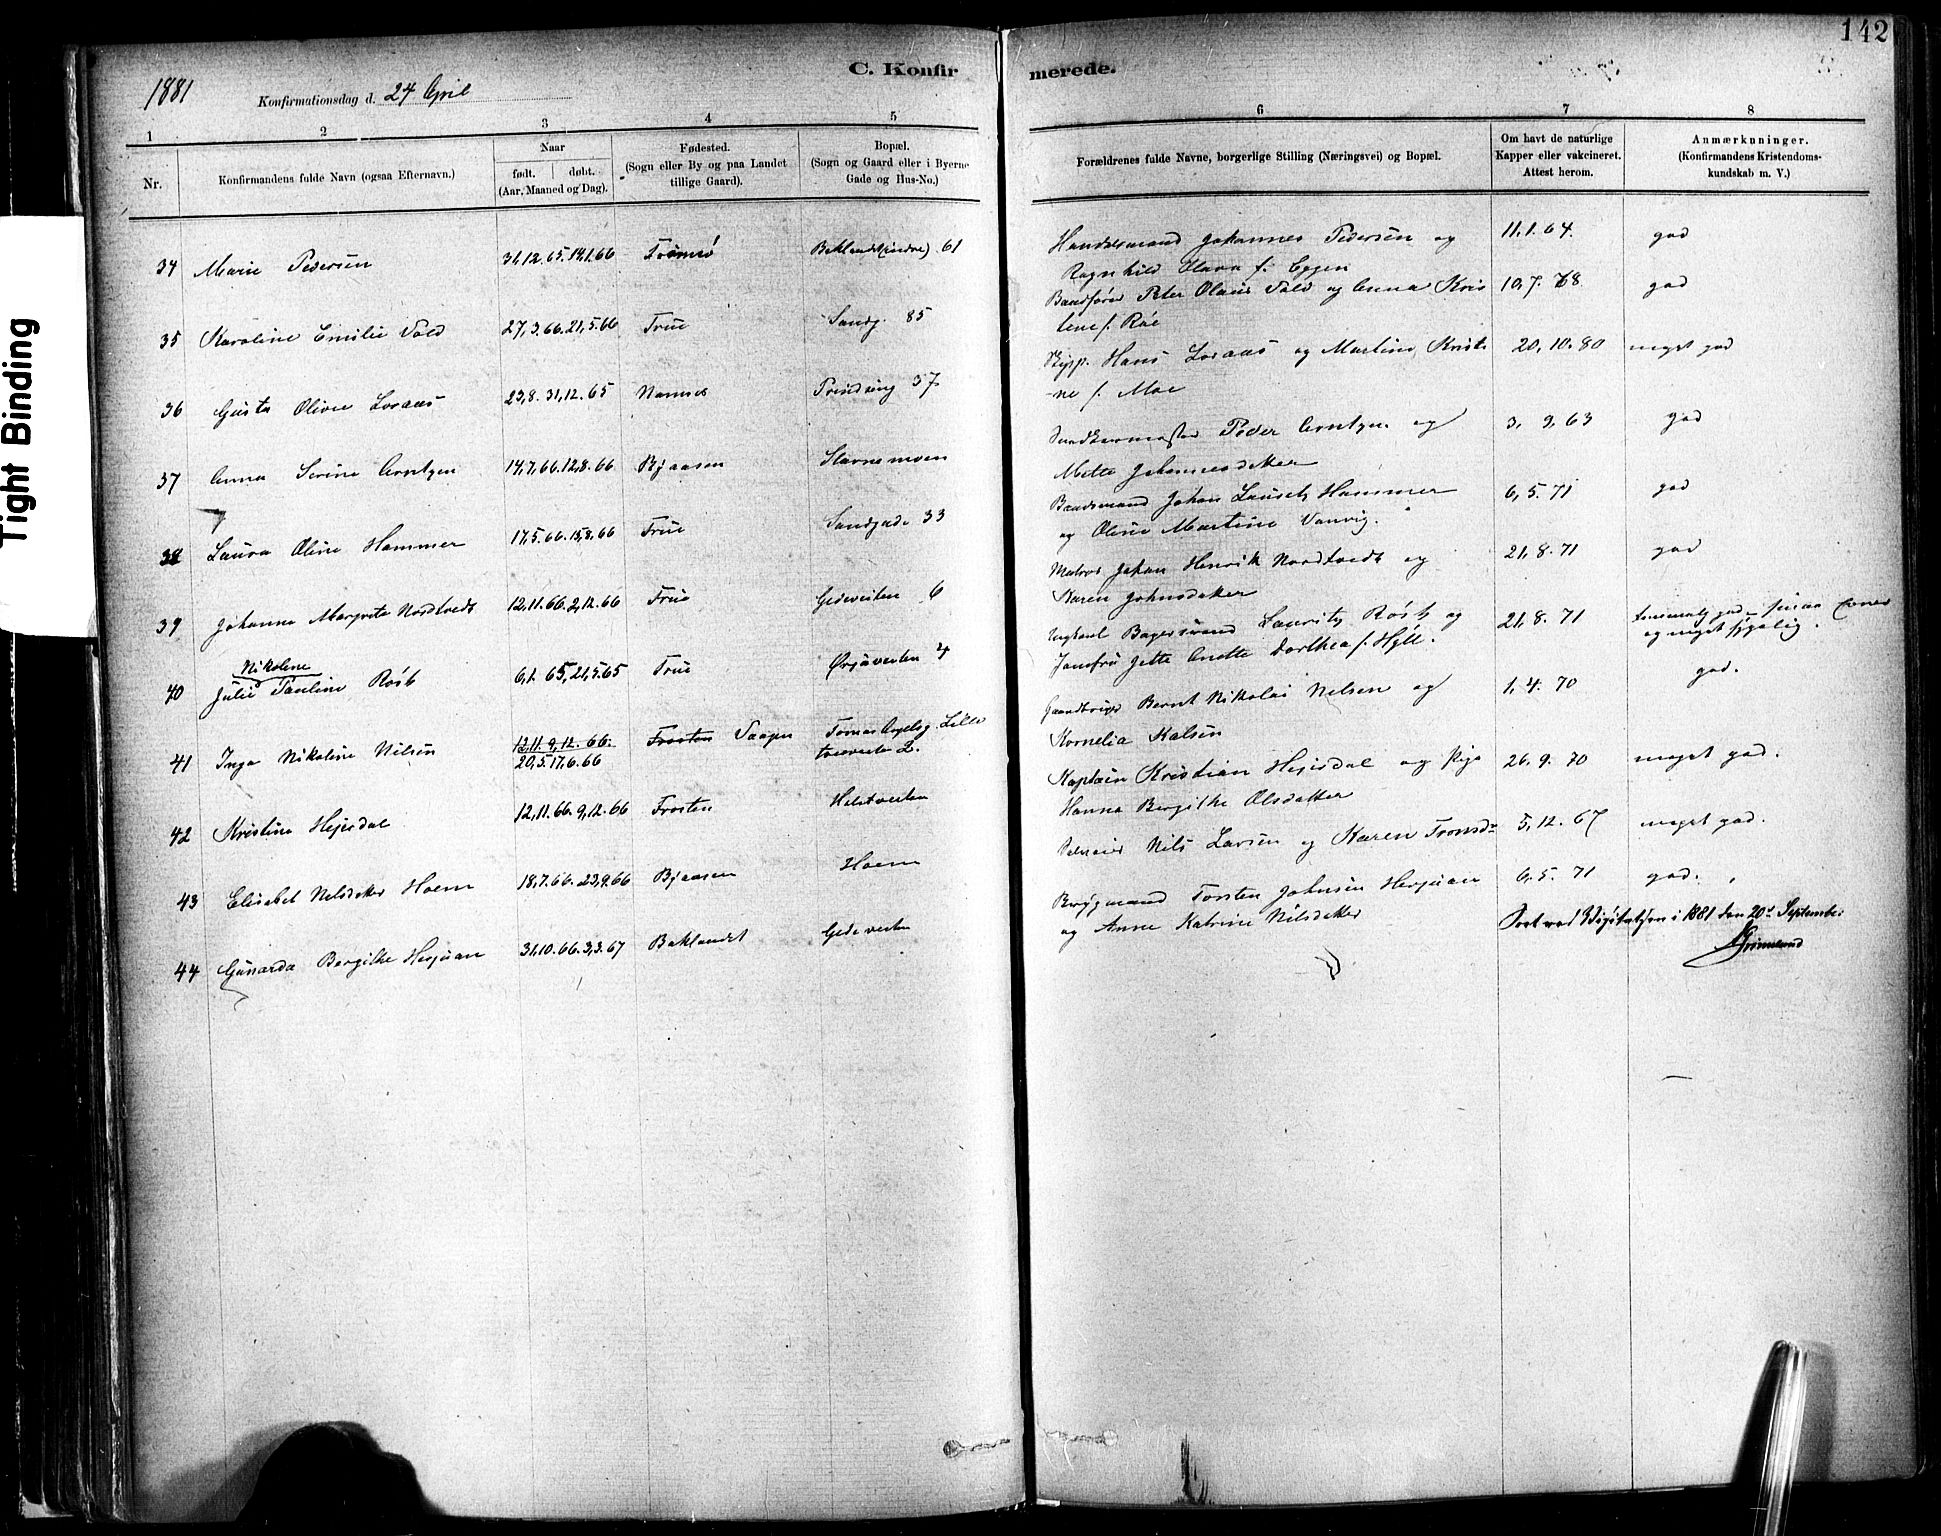 142
Tight Binding
1881
C. Konfirmerede.
Konfirmationsdag d. 24 April
1 2 3 4 5 6 7 8
Nr.
Konfirmandens fulde Navn (ogsaa Efternavn.)
Naar
født. døbt.
(Aar, Maaned og Dag).
Fødested.
(Sogn eller By og paa Landet
tillige Gaard).
Bopæl.
(Sogn og Gaard eller i Byerne
Gade og Hus-No.)
Forældrenes fulde Navne, borgerlige Stilling (Næringsvei) og Bopæl.
Om havt de naturlige
Kapper eller vakcineret.
Attest herom.
Anmærkninger.
(Konfirmandens Kristendoms-
kundskab m. V.)
34 Marie Pedersen 31,12.65. 14,1.66 Tromsø Baklandet (indre) 61 Handelsmand Johannes Pedersen og 11.1.64. god
Ragnhild Olava f. Eggen
35 Karoline Emilie Vold 27,3.66. 21,5.66 Frue Sandg. 85 Peter Olaus Vold og Anna Kris 10,7.68. god
tine f. Røe
36 Gusta Oline Loraas 23,8. 31,12.65 Namsos Prindseng 37 Skipp. Hans Loraas og Martine Kristi 20,10.80 meget god
-ne f. Moe
37 Anna Serine Arntzen 14,7.66. 12,8.66 Byaasen Stavnemoen Peder Arntzen og 3,9,63 god
Mette Johannesdatter
38 Laura Oline Hammer 17,5.66. 15,8.66 Frue Sandgade 33 Baadsmand Johan Hammer 6,5.71 god
og Oline Martine Vanvig.
39 Johanna Margrete Nordtvedt 12,11.66. 2,12.66 Frue Gedeveiten 6 Matros Johan Henrik Nordtvedt og 21,8.71 god
Karen Johnsdatter
40 Julie Nikoline Pauline Rosb 6,1.65, 21,5.65 Frue Ørjaveiten 4 Bagersvend Laurits Rosb og 21,8.71 god
Jomfru Jette Anette Dorthea f. Hyll. og meget
41 Inga Nikoline Nilsen 12,11. 9,12.66. Frosten Vaagen Tomas Angelsg. Lille 2. Bernt Nikolai Nelsen og 1,4.70 god.
20,5. 17,6.66
Kornelia Kalsen
42 Kristine Hejesdal 12,11.66. 9,12.66 Frosten Kaptein Kristian Hejesdal og Pige 26.9.70 meget god.
Hanna Bergithe Olsdatter
43 Elisabet Nilsdatter Hoem 18,7.66. 23,9.66 Byaasen Hoem Nils Larsen og Karen Tronsd= 5,12.67 meget god.
44 Gunarda Bergithe Hesjuan 31,10.66. 3,3.67 Baklandet Gedeveiten Torsten Johnsen Hesjuan 6,5.71 god.
og Anne Katrine Nilsdatter
Foret ved Visitatsen i 1881 den 20d September
Grimelund